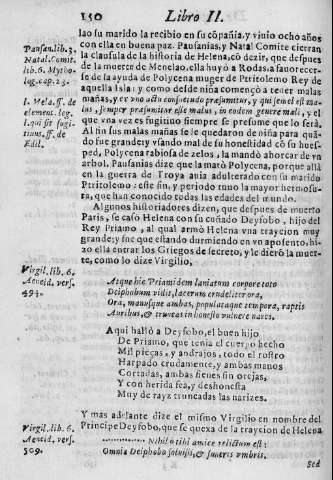 150 Libro II.
lao su marido la recibio en su cõpañia, y vinio ocho años
con ella en buena paz. Pausanias, y Natal Comite cierran
la clausula de la historia de Helena, cõ dezir, que despues
de la muerte de Menelao, ella huyó a Rodas a fauorecer-
se de la ayuda de Polycena muger de Ptritolemo Rey de
aquella Isla: y como desde niña començò a tener malas
mañas, y ex vno actu consuetudo præsumitur, y qui semel est ma-
lus, semper præsumitur esse malus, in eodem genere mali, y el
que vna vez es fugitiuo siempre se presume que lo serà,
Al fin sus malas mañas se le quedaron de niña para quã-
do fue grande: y vsando mal de su honestidad cõ su hues-
ped, Polycena rabiosa de zelos, la mandò ahorcar de vn
arbol. Pausanias dize que la matò Polycena, porque allà
en la guerra de Troya auia adulterado con su marido
Ptritolemo: este fin, y periodo tuuo la mayor hermosu-
ra, que han conocido todas las edades del mundo.
Algunos historiadores dizen, que despues de muerto
Paris, se casò Helena con su cuñado Deyfobo, hijo del
Rey Priamo, al qual armò Helena vna traycion muy
grande; y fue que estando durmiendo en vn aposento, hi-
zo ella entrar los Griegos de secreto, y le dierõ la muer-
te, como lo dize Virgilio,
Pausan. lib. 3.
Natal. Comit.
lib. 6. Mytho-
log. cap. 23.
l. Mela. ff. de
element. leg.
l. qui sit fugi-
tiuus. ff. de
Edil.
Virgil. lib. 6.
Aeneid. vers.
494.
Atque hic Priamidem laniatum corpore toto
Deiphobum vidit, lacerum crudeliter ora,
Ora, manusque ambas, populataque tempora, raptis
Auribus, & truncas inhonesto vulnere nares.
Aqui hallò a Deyfobo, el buen hijo
De Priamo, que tenia el cuerpo hecho
Mil pieças, y andrajos, todo el rostro
Harpado crudamente, y ambas manos
Cortadas, ambas sienes sin orejas,
Y con herida fea, y deshonesta
Muy de rayz truncadas las narizes.
Y mas adelante dize el mismo Virgilio en nombre del
Principe Deyfobo, que se quexa de la traycion de Helena
Virgil. lib. 6.
Aeneid. vers.
509.
............ Nihil o tibi amice relictum est:
Omnia Deiphobo soluisti, & funeris vmbris.
Sed